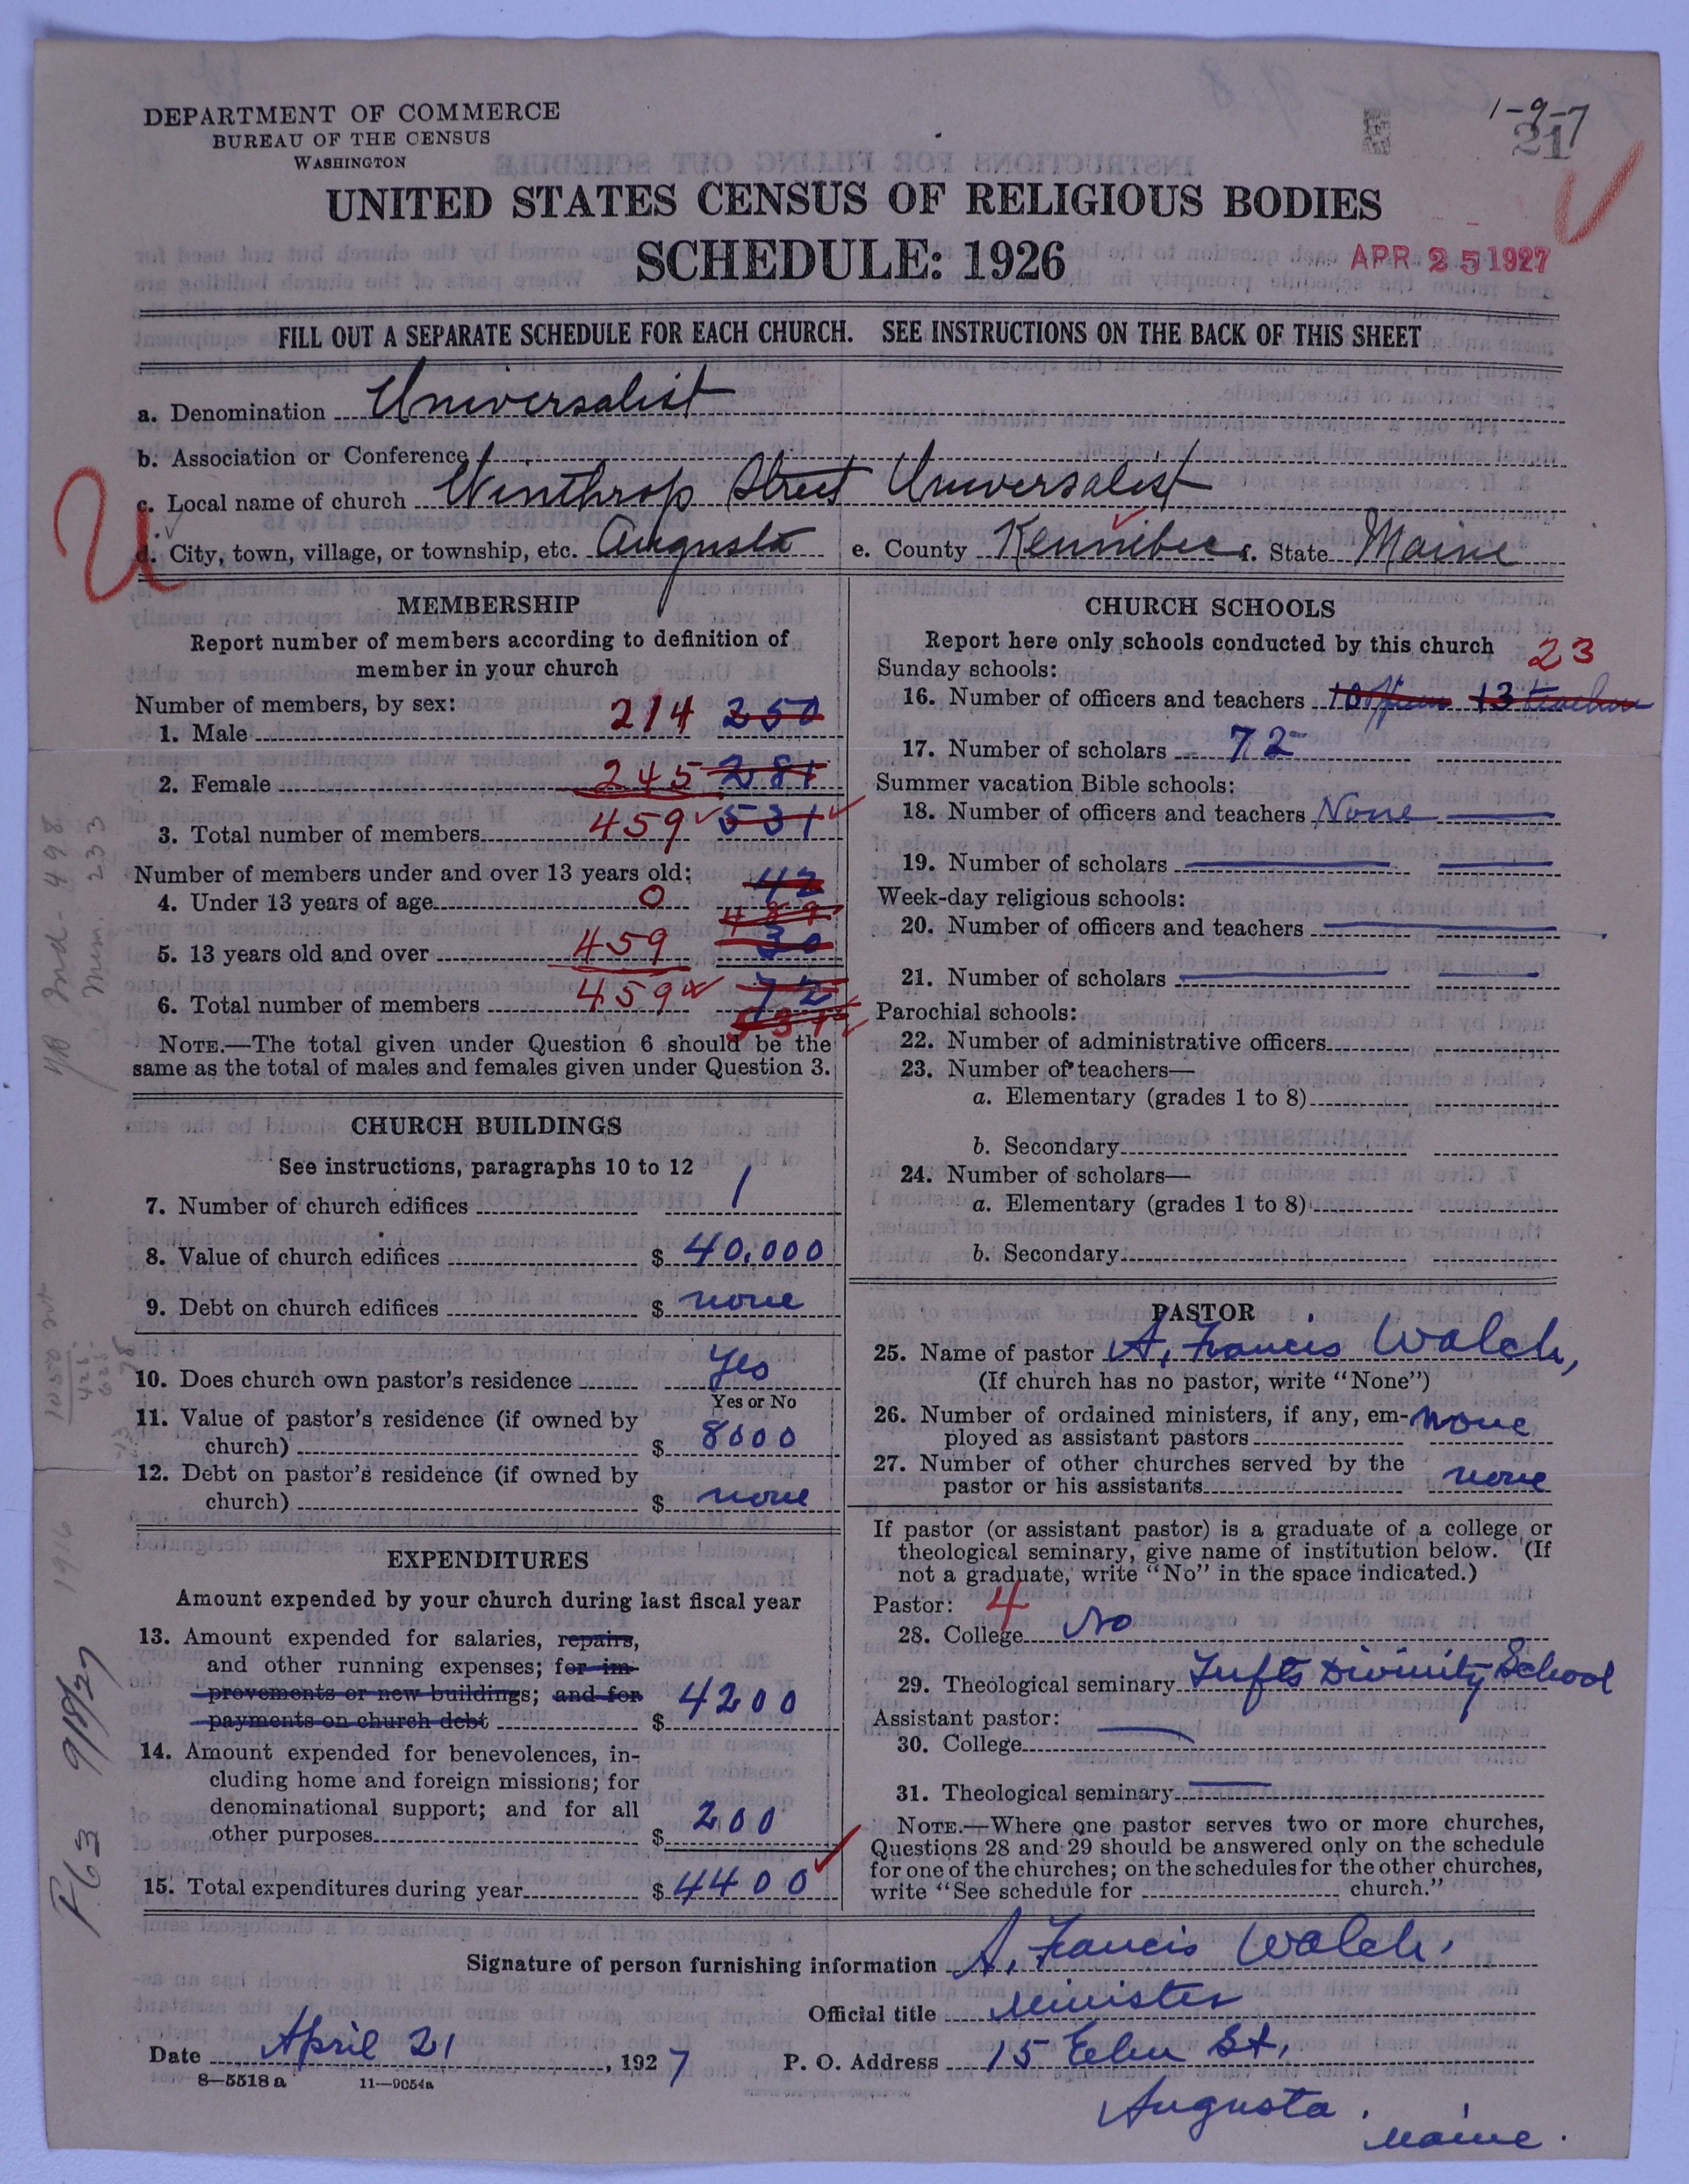 1-9-7
21
DEPARTMENT OF COMMERCE
BUREAU OF THE CENSUS
WASHINGTON
UNITED STATES CENSUS OF RELIGIOUS BODIES
SCHEDULE: 1926
APR 25 1927
FILL OUT A SEPARATE SCHEDULE FOR EACH CHURCH. SEE INSTRUCTIONS ON THE BACK OF THIS SHEET
a. Denomination Universalist
b. Association or Conference
c. Local name of church Winthrop Street Universalist
d. City, town, village, or township, etc. Augusta e. County Kennebec f. State Maine
MEMBERSHIP
Report number of members according to definition of
member in your church
Number of members, by sex:
1. Male 214 250
2. Female 245 281
3. Total number of members 459 531
Number of members under and over 13 years old:
4. Under 13 years of age 0 42
489
5. 13 years old and over 459 30
6. Total number of members 459 72
531
NOTE.—The total given under Question 6 should be the
same as the total of males and females given under Question 3.
CHURCH BUILDINGS
See instructions, paragraphs 10 to 12
7. Number of church edifices 1
8. Value of church edifices $ 40,000
9. Debt on church edifices $ none
10. Does church own pastor's residence Yes
Yes or No
11. Value of pastor's residence (if owned by
church) $ 8000
12. Debt on pastor's residence (if owned by
church) $ none
EXPENDITURES
Amount expended by your church during last fiscal year
13. Amount expended for salaries, repairs,
and other running expenses; for im-
provements or new buildings; and for
payments on church debt $ 4200
14. Amount expended for benevolences, in-
cluding home and foreign missions; for
denominational support; and for all
other purposes $ 200
15. Total expenditures during year $ 4400
CHURCH SCHOOLS
Report here only schools conducted by this church
23
Sunday schools:
16. Number of officers and teachers 10 officers 13 teachers
17. Number of scholars 72
Summer vacation Bible schools:
18. Number of officers and teachers None
19. Number of scholars
Week-day religious schools:
20. Number of officers and teachers
21. Number of scholars
Parochial schools:
22. Number of administrative officers
23. Number of teachers—
a. Elementary (grades 1 to 8)
b. Secondary
24. Number of scholars—
a. Elementary (grades 1 to 8)
b. Secondary
PASTOR
25. Name of pastor A. Francis Walch,
(If church has no pastor, write "None")
26. Number of ordained ministers, if any, em-
ployed as assistant pastors none
27. Number of other churches served by the
pastor or his assistants none
If pastor (or assistant pastor) is a graduate of a college or
theological seminary, give name of institution below. (If
not a graduate, write "No" in the space indicated.)
Pastor: 4
28. College No
29. Theological seminary Tufts Divinity School
Assistant pastor:
30. College
31. Theological seminary
NOTE.—Where one pastor serves two or more churches,
Questions 28 and 29 should be answered only on the schedule
for one of the churches; on the schedules for the other churches,
write "See schedule for church."
Signature of person furnishing information A. Francis Walch,
Official title Minister
Date April 21, 1927 P. O. Address 15 Elm St,
8—5518 a 11—9054a
Augusta,
Maine.
U
498
Mem 233
1916
9/18/27
P63